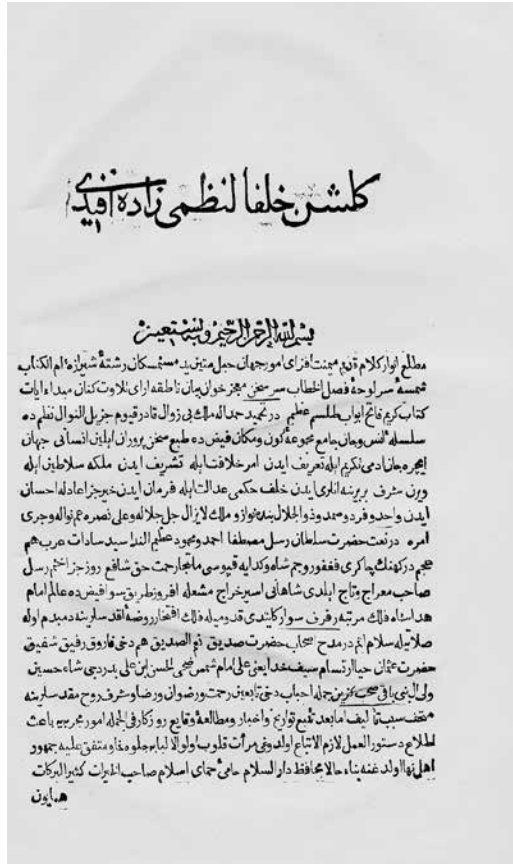 كلشن خلفا لنظمى زاده افندى
بسم الله الرحمن الرحيم وبه نستعين
مطلع انوار كلام قديم ميمنت افزاى امور جهان حبل متين يد مستمسكان رشتهٔ شيرازه ام الكتاب
شمسهٔ سر لوحهٔ فصل الخطاب سر سخن معجز خوان بيان ناطقه اراى تلاوت كنان مبداء ايات
كتاب كريم فاتح ابواب طلسم عظيم در تحميد حمد اله ملك بى زوال قادر قيوم جزيل النوال نظم ده
سلسلهٔ انس وجان جامع مجموعهٔ كون ومكان فيض ده طبع سخن پروران ايلين انسانى جهان
ايچره جان ادمى تكريم ايله تعريف ايدن امر خلافت ايله تشريف ايدن ملكه سلاطين ايله
ويرن شرف بربرينه انلرى ايدن خلف حكمى عدالت ايله فرمان ايدن خير جزا عادله احسان
ايدن واحد وفرد وصمد وذو الجلال بنده نواز وملك لايزال جل جلاله وعلى نصره عم نواله وجرى
امره در نعت حضرت سلطان رسل مصطفا احمد ومحمود عظيم الندا سيد سادات عرب هم
عجم دركهنك چاكرى فغفور وجم شاه وكدايه قپوسى ملتجا رحمت حق شافع روز جزا ختم رسل
صاحب معراج وتاج ايلدى شاهانى اسير خراج مشعله افروز طريق سوا فيض ده عالم امام
هدا سئاه فلك مرتبه رفرف سوار كلندى قدوميله فلك افتخار روضهٔ اقدسلرينه دمبدم اوله
صلاتيله سلام اتم در مدح صحاب حضرت صديق نعم الصديق هم دخى فاروق رفيق شفيق
حضرت عثمان حيا ارتسام سيف خدا يعنى على امام شمس ضحى الحسن ابن على بدر دجى شاه حسين
ولى ال نبى باقى صحب كزين جمله احباب دخى تابعين رحمت ورضوان ورضا وشرف روح مقدسلرينه
متحف سبب تأليف اما بعد تتبع تواريخ واخبار ومطالعهٔ وقايع روزكار فى الجمله امور مجربيه باعث
اطلاع دستور العمل لازم الاتباع اولدوغى مرأت قلوب اولو الالبابه جلوه نما ومتفق عليه جمهور
اهل نها اولدغنه بناء حالا محافظ دار السلام حامئ حماى اسلام صاحب الخيرات كثير البركات
همايون